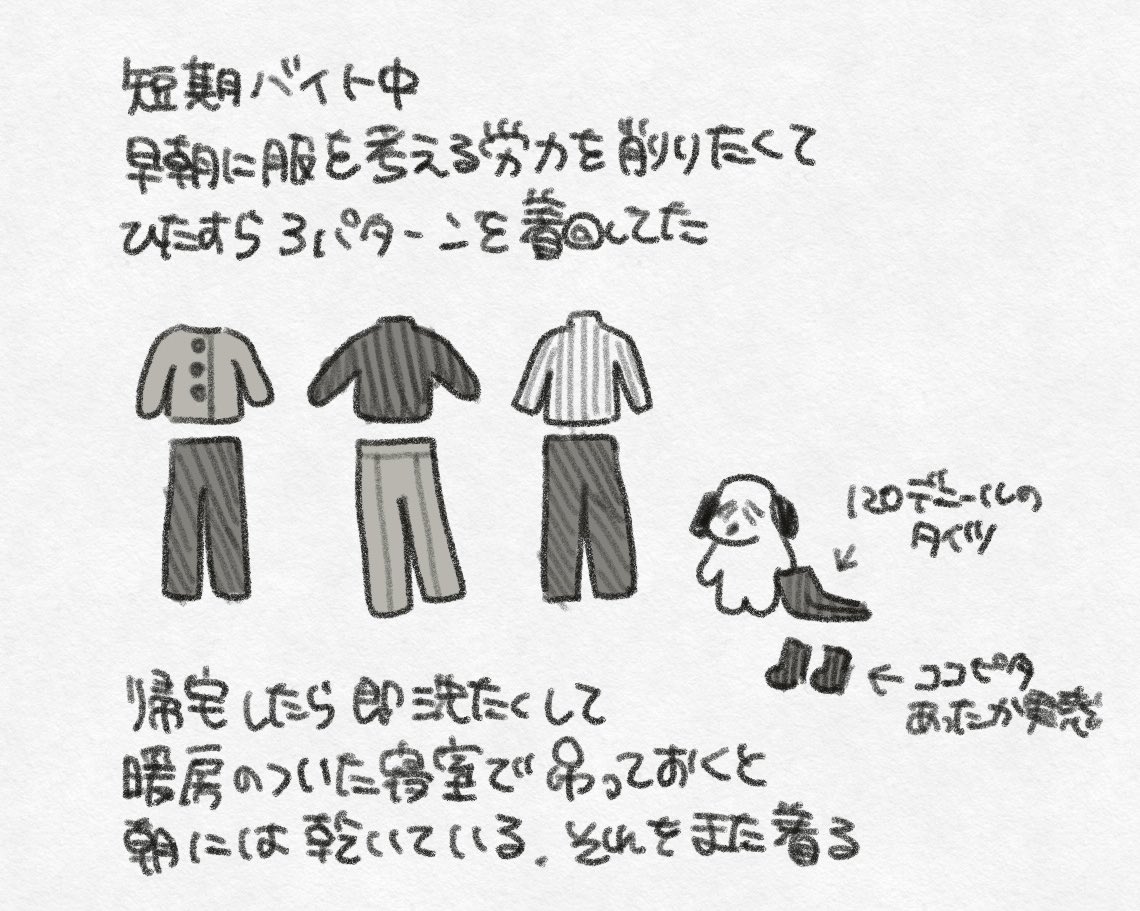 短期バイト中
早朝に服を考える労力を削りたくて
ひたすら3パターンを着回してた
120デニールの
タイツ
←ココピタ
あったか実感
帰宅したら即洗たくして
暖房のついた寝室で吊っておくと
朝には乾いている。それをまた着る